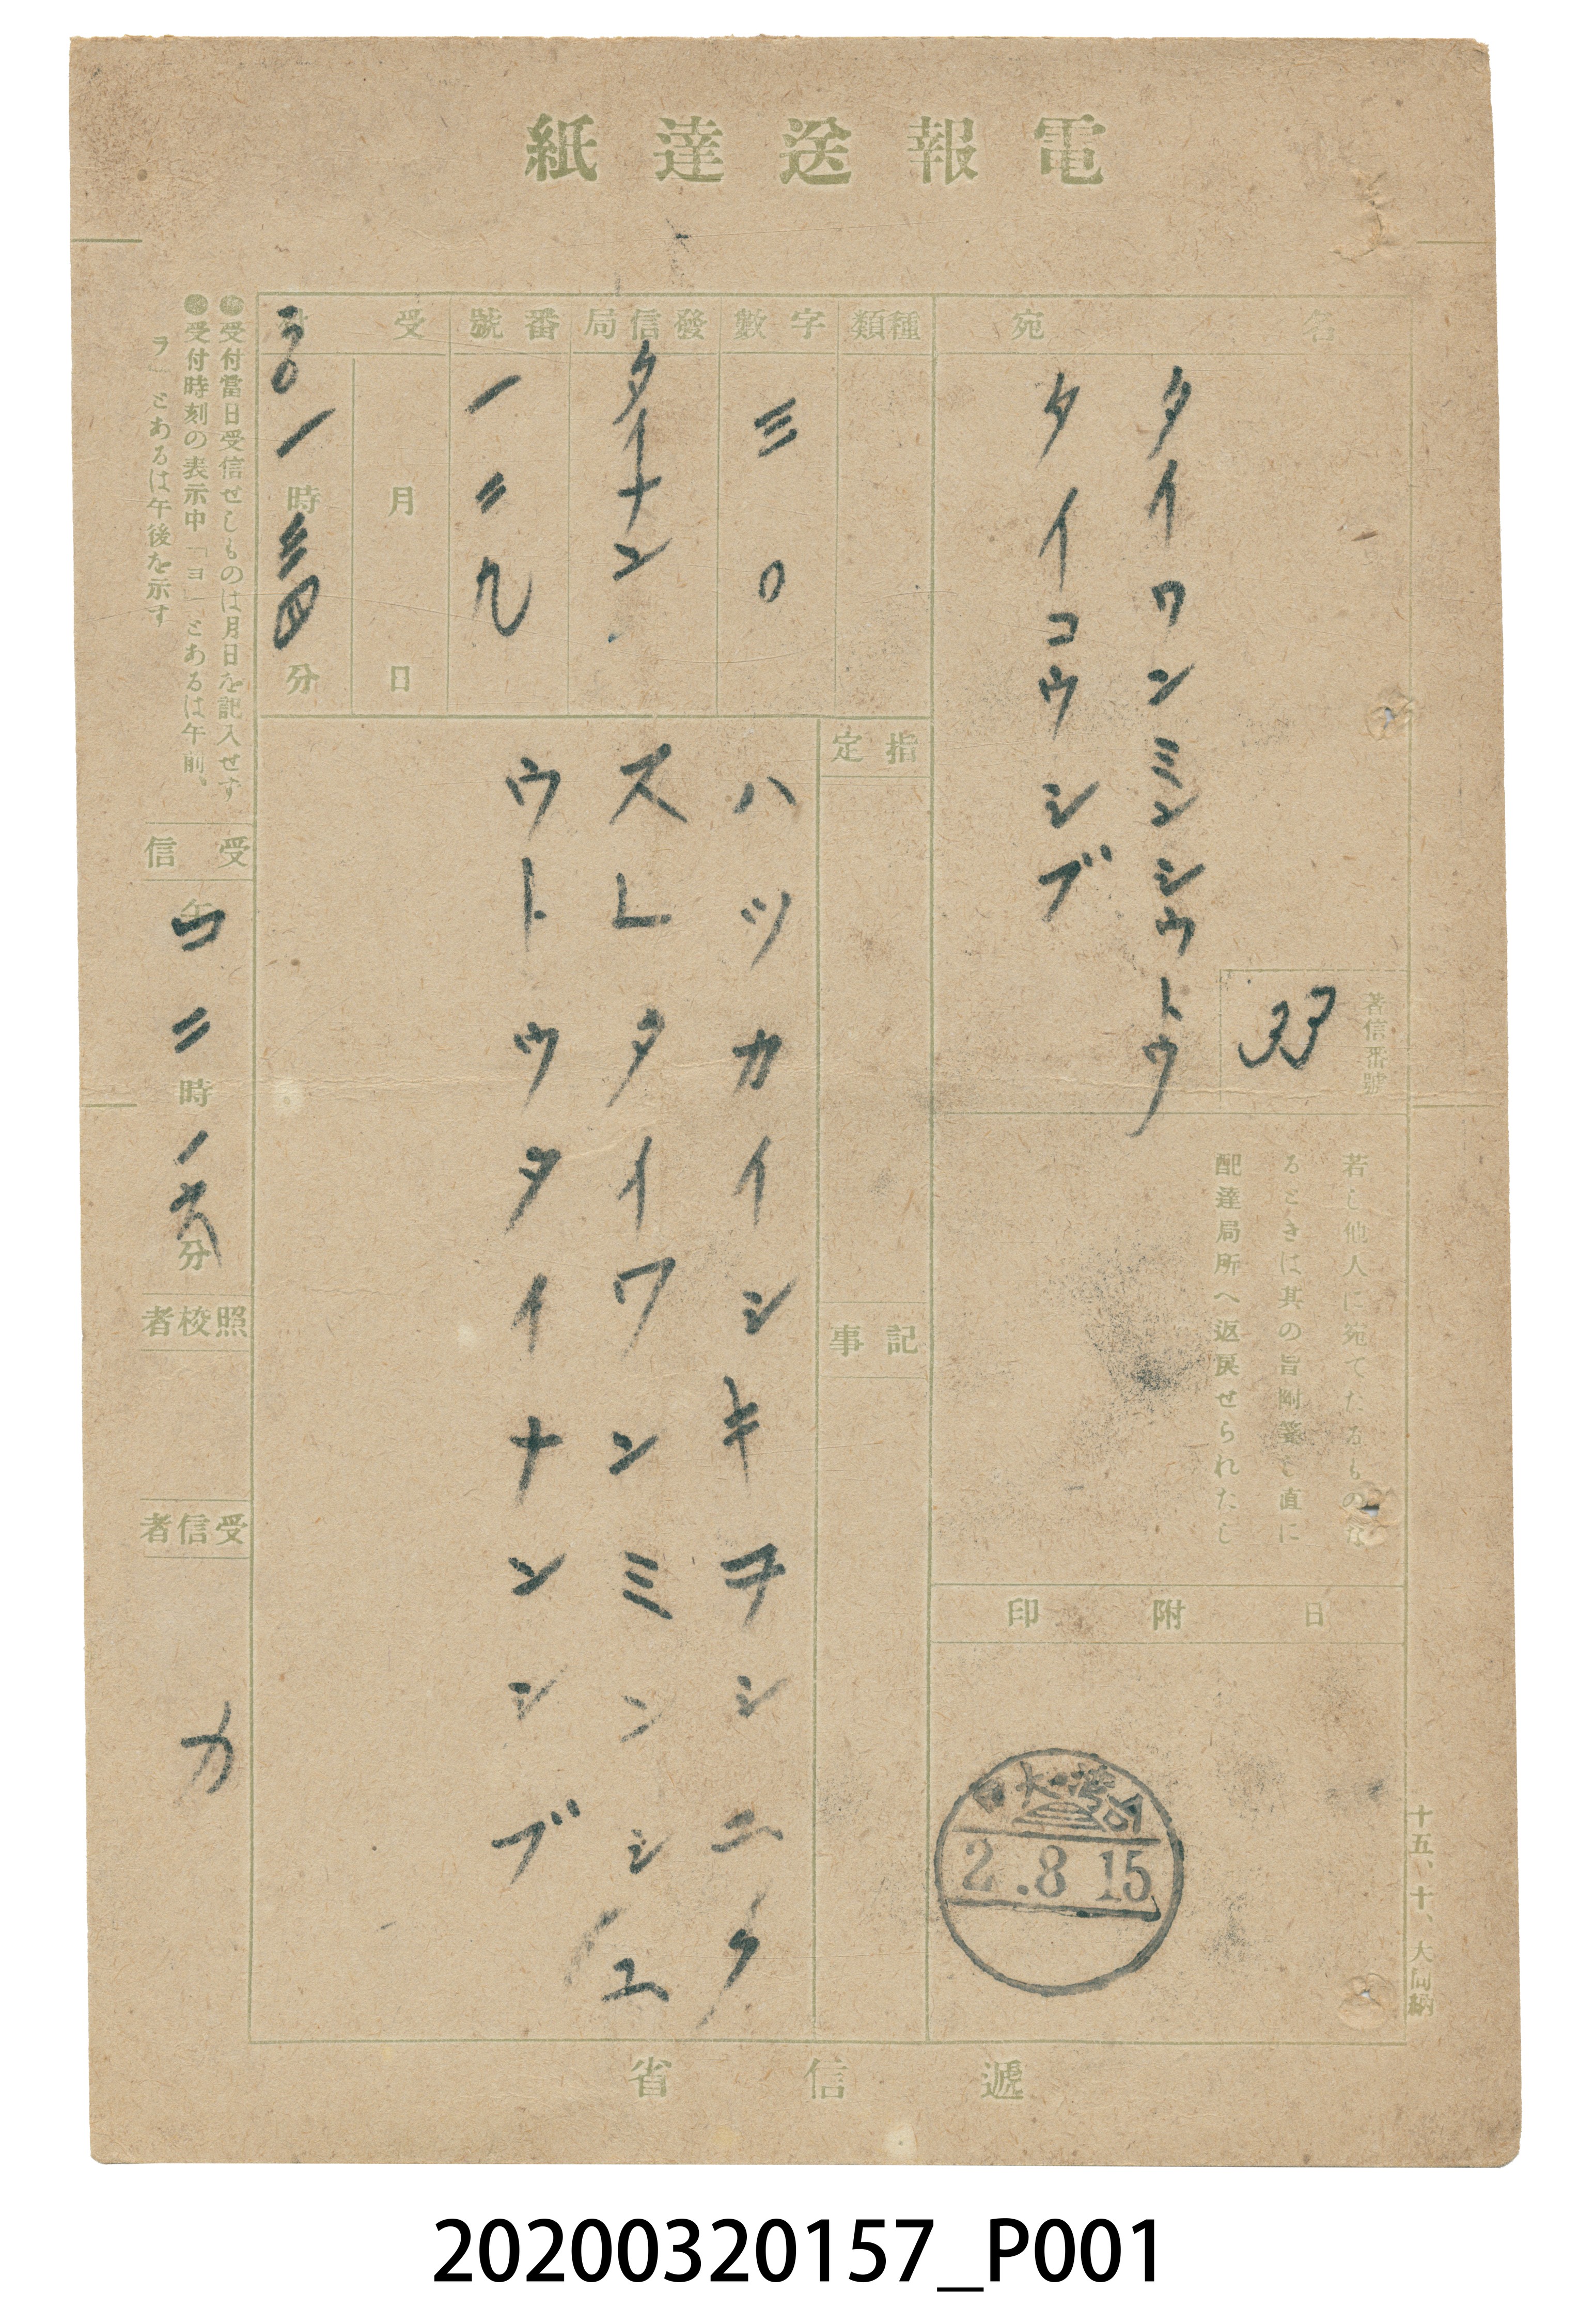 電報送達紙
名宛
タイワンミンシウトウ
タイコウシブ
著信番號
33
若し他人に宛てたるものな
るときは其の旨附箋し直に
配達局所へ返戻せられたし
日附印
2.8.15
種類
字數
三〇
發信局
タイナン
番號
一二九
受付
月日
コ〇一時三四分
指定
記事
ハツカイシキヲシユク
スレタイワンミンシユ
ウトウタイナンシブ
受付當日受信せしものは月日を記入せす
受付時刻の表示中「ヨ」とあるは午前、
「ヲ」とあるは午後を示す
受信
午コ二時一六分
照校者
受信者
カ
十五、十、大同納
遞信省
20200320157_P001